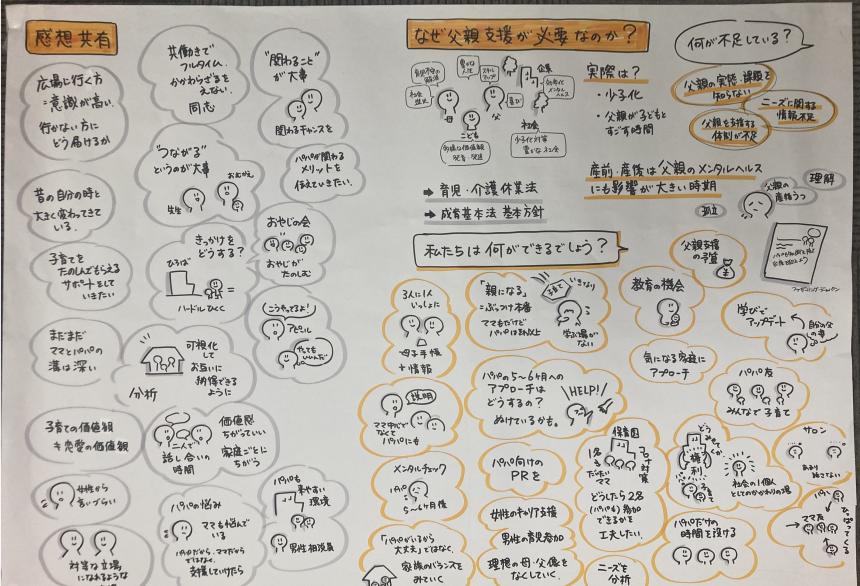 感想共有
広場に行く方
=意識が高い.
行かない方に
どう届けるか
昔の自分の時と
大きく変わってきて
いる.
子育てを
たのしんでもらえる
サポートをして
いきたい
まだまだ
ママとパパの
溝は深い
子育ての価値観
≠恋愛の価値観
女性から
言いづらい
対等な立場
になれるような
共働きで
フルタイム.
かかわらざるを
えない.
同志
"つながる"
というのが大事
先生
きっかけを
どうする?
ひろば
ハードルひくく
可視化
して
お互いに
納得できる
ように
分析
二人で
話し合いの
時間
価値感
ちがっていい
家庭ごとに
ちがう
パパの悩み
ママも悩んでいる
パパだから、ママだから
ではなく、
支援していけたら
"関わること"
が大事
関わるチャンスを
パパが関わる
メリットを
伝えていきたい.
おやじの会
おやじが
たのしむ
こうやってるよ!
アピール
パパも
来やすい
環境
男性相談員
なぜ父親支援が必要なのか?
企業
母
父
こども
社会
少子化対策
豊かな社会
実際は?
・少子化
・父親が子どもと
すごす時間
➡ 育児・介護休業法
➡ 成育基本法 基本方針
何が不足している?
父親の実態・課題を
知らない
ニーズに関する
情報不足
父親を支援する
体制が不足
産前・産後は父親のメンタルヘルス
にも影響が大きい時期
孤立
父親の
産後うつ
理解
私たちは何ができるでしょう?
3人に1人
いっしょに
母子手帳
+情報
説明
ママだけで
なくて
パパにも
メンタルチェック
パパ
5~6ヶ月後
「パパがいるから
大丈夫」ではなく、
家族のバランスを
みていく
「親になる」
=ぶっつけ本番
ママもだけど
パパは
子育て
いきなり
学ぶ場が
ない
パパの5~6ヶ月への
アプローチは
どうするの?
ぬけているかも。
HELP!
パパ向けの
PRを
女性のキャリア支援
男性の育児参加
理想の母・父像を
なくしていく.
保育園
1名
だいたい
ママ
コロナ対策
どうしたら2名
(パパも)参加
できるかを
工夫したい.
ニーズを
分析
教育の機会
父親支援
の予算
気になる家庭に
アプローチ
学びで
アップデート
自分の父
の事
パパ友
みんなで子育て
権利
子ども
社会の1個人
としてのかかわりの場
パパだけの
時間を設ける
サロン
パパ
ママ友
ひっぱってくる